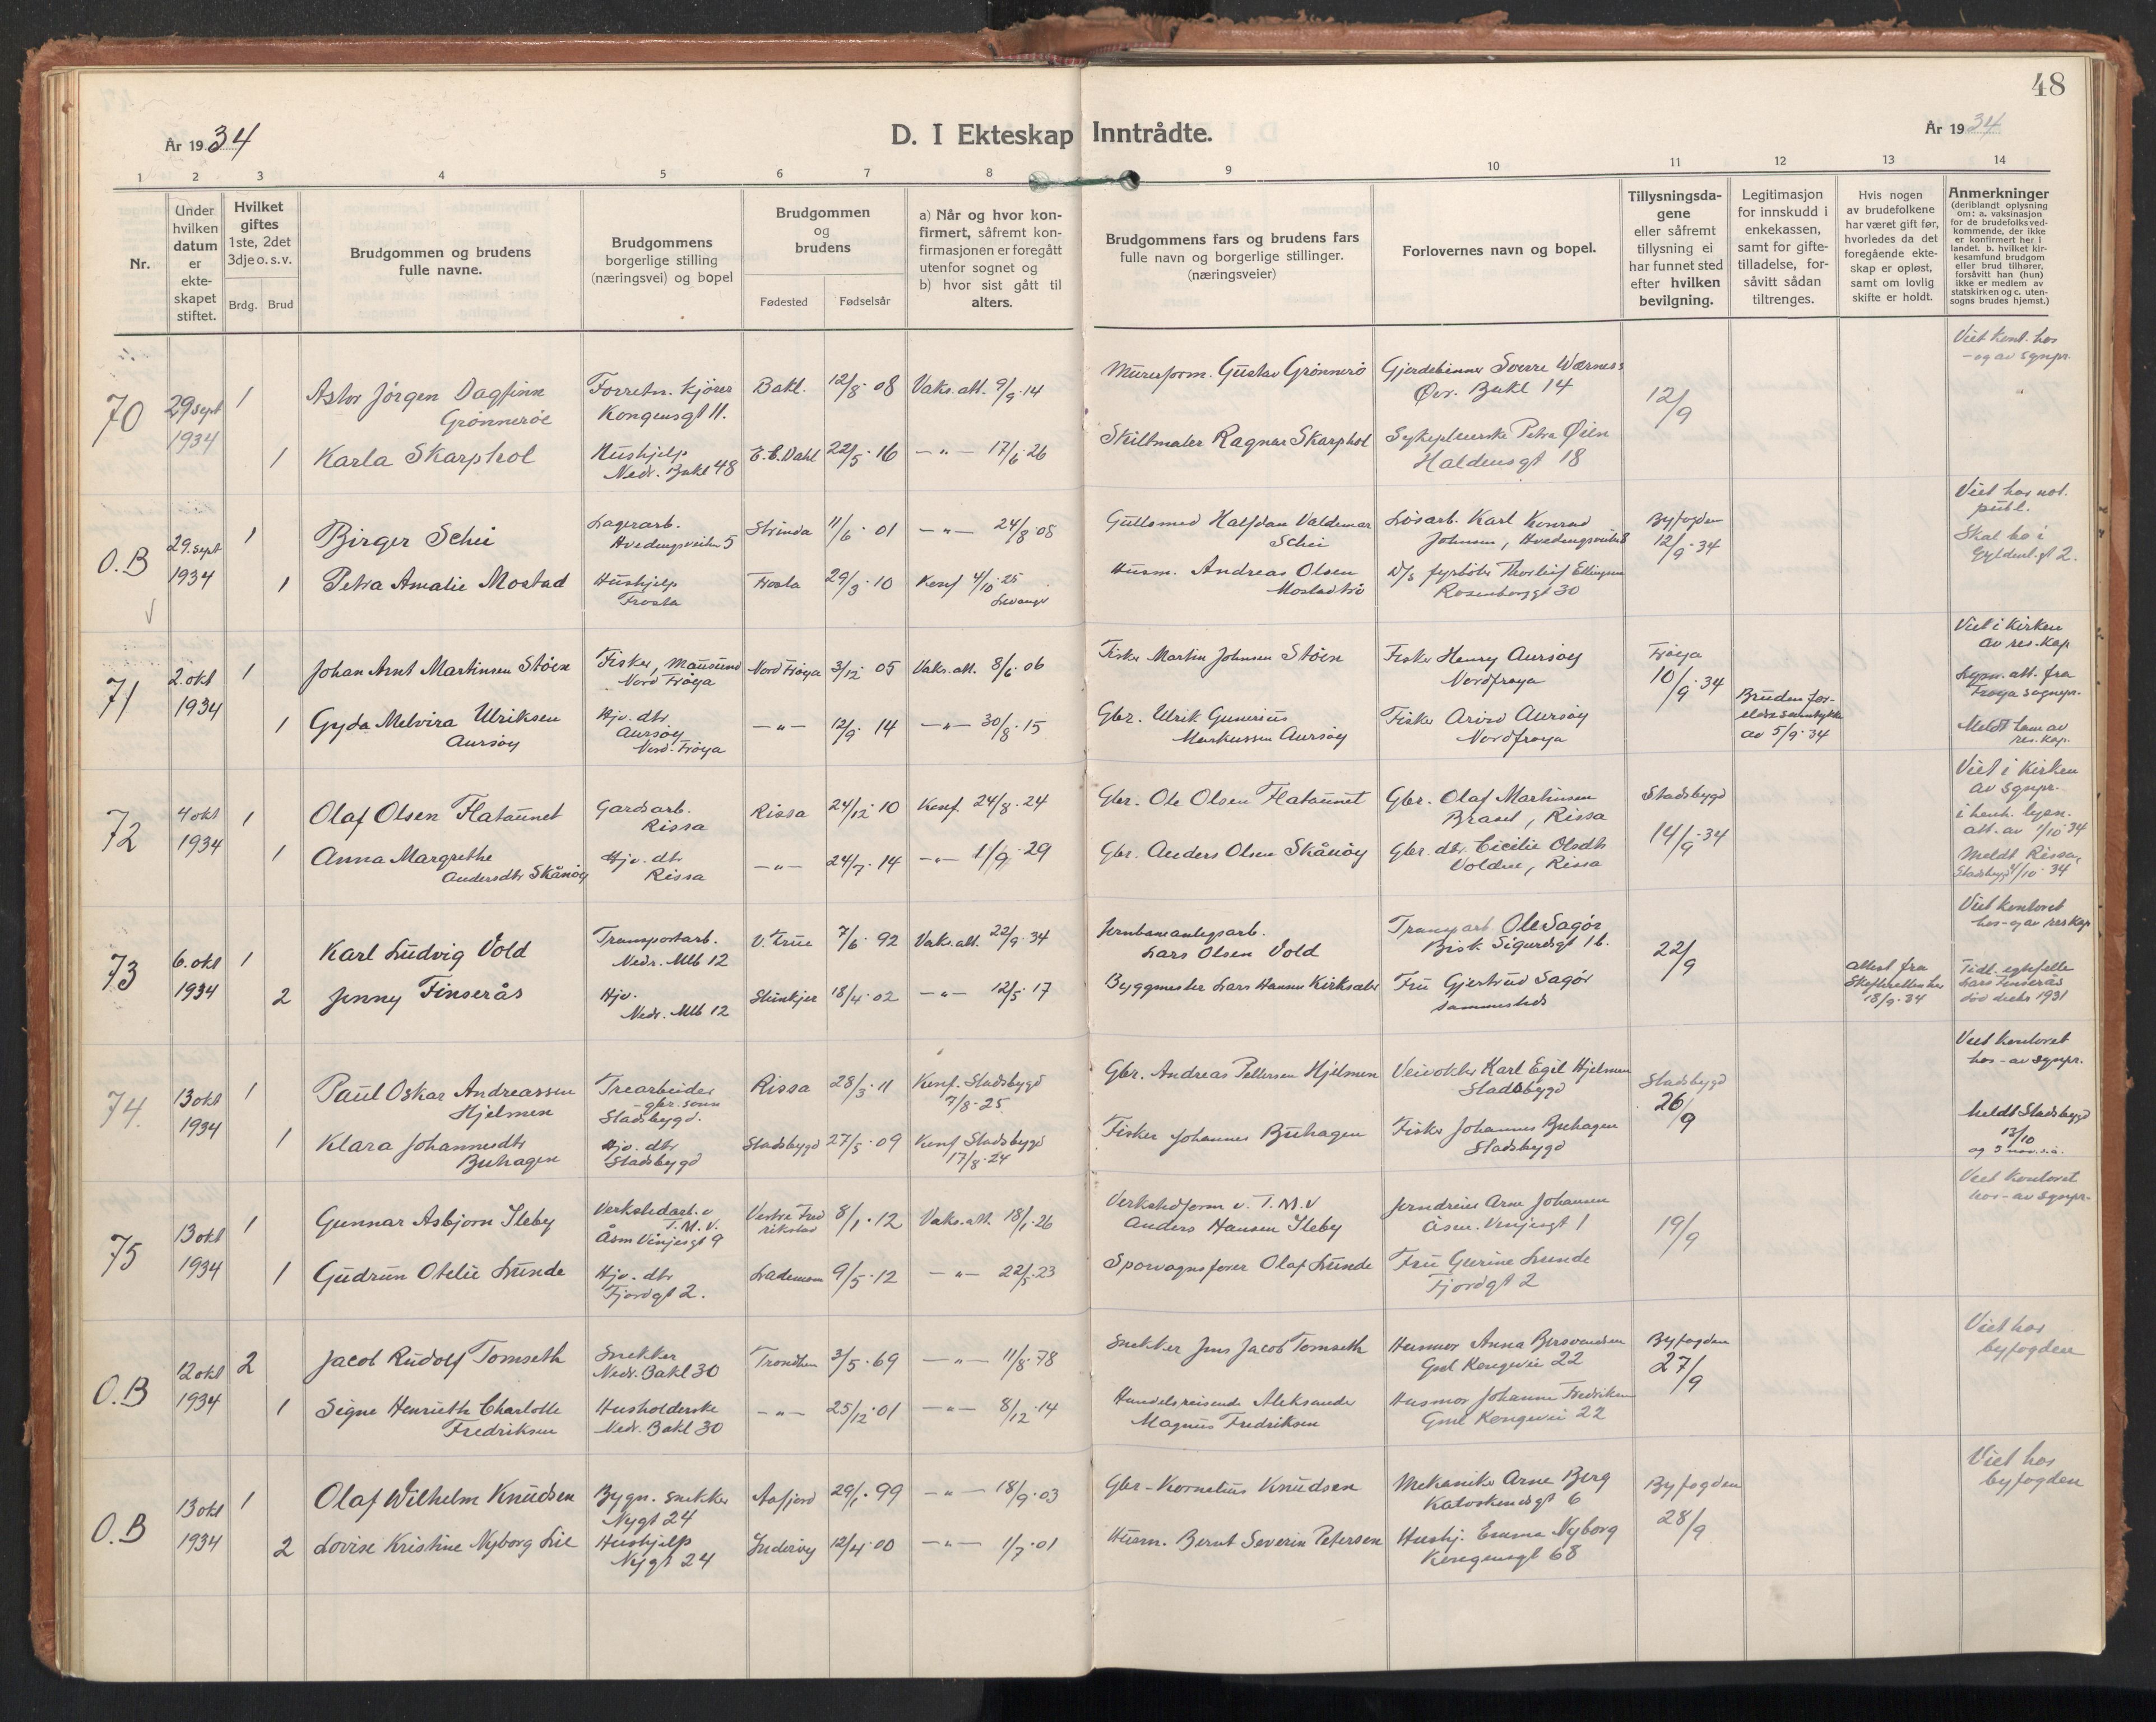 48
År 1934
D. I Ekteskap Inntrådte.
År 1934
1 2 3 4 5 6 7 8 9 10 11 12 13 14
Nr.
Under hvilken datum er ekteskapet stiftet.
Hvilket giftes 1ste, 2det 3dje o. s. v.
Brdg. Brud
Brudgommen og brudens fulle navne.
Brudgommens borgerlige stilling (næringsvei) og bopel
Brudgommen og brudens
Fødested Fødselsår
a) Når og hvor konfirmert, såfremt konfirmasjonen er foregått utenfor sognet og
b) hvor sist gått til alters.
Brudgommens fars og brudens fars fulle navn og borgerlige stillinger. (næringsveier)
Forlovernes navn og bopel.
Tillysningsdagene eller såfremt tillysning ei har funnet sted efter hvilken bevilgning.
Legitimasjon for innskudd i enkekassen, samt for giftetilladelse, forsåvitt sådan tiltrenges.
Hvis nogen av brudefolkene har været gift før, hvorledes da det foregående ekteskap er opløst, samt om lovlig skifte er holdt.
Anmerkninger (deriblandt oplysning om: a. vaksinasjon for de brudefolksvedkommende, der ikke er konfirmert her i landet. b. hvilket kirkesamfund brudgom eller brud tilhører, forsåvitt han (hun) ikke er medlem av statskirken og c. utensogns brudes hjemst.)
70 29 sept 1934 1 Astor Jörgen Dagfinn Grönneröe
Forretn. kjörer Kongensgt 11.
Bakl. 12/8·08 Vaks.att. 9/9·14
Murerform. Gustav Grönnerö
Gjerdebinner Sverre Wærness Övr. Bakl 14
12/9
Viet kont. hos - og av sgnpr.
1 Karla Skarphol
Hushjelp Nedr. Bakl 48
E.C. Dahl 22/5·16 -"- 17/6·26
Skiltmaler Ragnar Skarphol
Sykepleierske Petra Öien Haldensgt 18
O.B 29. sept 1934 1 Birger Schei
Lagerarb. Hvedingsveien 5
Strinda 11/6·01 -"- 24/8·05
Gullsmed Halfdan Valdemar Schei
Lösarb. Karl Konrad Johnsen, Hvedingsveien 8
Byfogden 12/9·34
Viet hos not. publ.
Skal bo i Gyldenl.gt 2.
1 Petra Amalie Mostad
Hushjelp Frosta
Frosta 29/3·10 Konf 4/10·25 Levanger
Husm. Andreas Olsen Mostadtrö
D/s fyrböter Thorleif Ellingsen Rosenborggt 30
71 2. okt 1934 1 Johan Arnt Martinsen Stöen
Fisker, Mausund Nord Fröya
Nord Fröya 3/12·05 Vaks.att. 8/6·06
Fisker Martin Johnsen Stöen
Fisker Henry Aursöy Nordfröya
Fröya 10/9·34
Viet i Kirken av res.kap.
Lysn. att. fra Fröya sognepr.
1 Gyda Melvira Ulriksen Aursöy
Hjv. dtr Aursöy Nord-Fröya
-"- 12/9·14 -"- 30/8·15
Gbr. Ulrik Gunerius Markussen Aursöy
Fisker Arvid Aursöy Nordfröya
Brudens foreldres samtykke av 5/9·34
72 4 okt 1934 1 Olaf Olsen Flataunet
Gardsarb. Rissa
Rissa 24/12·10 Konf. 24/8·24
Gbr. Ole Olsen Flataunet
Gbr. Olaf Martinsen Brasel, Rissa
Stadsbygd 14/9·34
Viet i Kirken av sgnpr. i henh. lysn. att. av 1/10·34
Meldt Rissa, Stadsbygd 4/10·34
1 Anna Margrethe Andersdtr Skånöy
Hjv. dtr Rissa
-"- 24/7·14 -"- 1/9·29
Gbr. Anders Olsen Skånöy
Gbr. dtr. Cicilie Olsdtr Volden, Rissa
73 6. okt 1934 1 Karl Ludvig Vold
Transportarb. Nedr. Mllb 12
V. Frue 7/6·92 Vaks.att. 22/9·34
Jernbaneanlegsarb. Lars Olsen Vold
Transp.arb Ole Sagör Bisk. Sigurdsgt 16.
22/9
Viet kontoret hos - og av res kap
2 Jenny Finserås
Hjv. Nedr. Mllb 12
Steinkjer 18/4·02 -"- 12/5·17
Byggmester Lars Hansen Kirksæter
Fru Gjertrud Sagör sammesteds
Attest fra Skifteretten her 18/9·34
Tidl. egtefelle Lars Finserås död decbr 1931
74. 13 okt 1934 1 Paul Oskar Andreassen Hjelmen
Trearbeider - gbr. sönn Stadsbygd.
Rissa 28/3·11 Konf. Stadsbygd 7/8·25
Gbr. Andreas Pettersen Hjelmen
Veivokter Karl Egil Hjelmen Stadsbygd
Stadsbygd 26/9
Viet kontoret hos - av sgnpr.
1 Klara Johannesdtr Buhagen
Hjv. dtr Stadsbygd
Stadsbygd 27/5·09 Konf Stadsbygd 17/8·24
Fisker Johannes Buhagen
Fisker Johannes Buhagen Stadsbygd
Meldt Stadsbygd 13/10
75 13 okt 1934 1 Gunnar Asbjörn Ileby
Verkstedarb. v T.M.V. Åsm Vinjesgt 9
Vestre Fredrikstad 8/1·12 Vaks.att. 18/1·26
Verkstedform v. T.M.V Anders Hansen Ileby
Jerndreier Arne Johansen Åsm. Vinjesgt 1
19/9
Viet kontoret hos - av sgnpr.
1 Gudrun Otelie Lunde
Hjv. dtr Fjordgt 2.
Lademoen 9/5·12 -"- 22/5·23
Sporvognsförer Olaf Lunde
Fru Gurine Lunde Fjordgt 2
O.B 12 okt 1934 2 Jacob Rudolf Tomseth
Snekker Nedr. Bakl 30
Trondhem 3/5·69 -"- 11/8·78
Snekker Jens Jacob Tomseth
Husmor Anna Bersvendsen Gml Kongevei 22
Byfogden 27/9
Viet hos byfogden
1 Signe Henriette Charlotte Fredriksen
Husholderske Nedr. Bakl 30
-"- 25/12·01 -"- 8/12·14
Handelsreisende Aleksander Magnus Fredriksen
Husmor Johanne Fredriksen Gml Kongevei 22
O.B 13 okt 1934 1 Olaf Wilhelm Knudsen
Bygn. snekker Nygt 24
Aafjord 29/1·99 -"- 18/9·03
Gbr - Kornelius Knudsen
Mekaniker Arne Berg
Byfogden 28/9
Viet hos byfogden
2 Lovise Kristine Nyborg Lie
Hushjelp Nygt 24
Inderöy 12/4·00 -"- 1/7·01
Husm. Bernt Severin Petersen
Hushj. Emma Nyborg Kongensgt 68